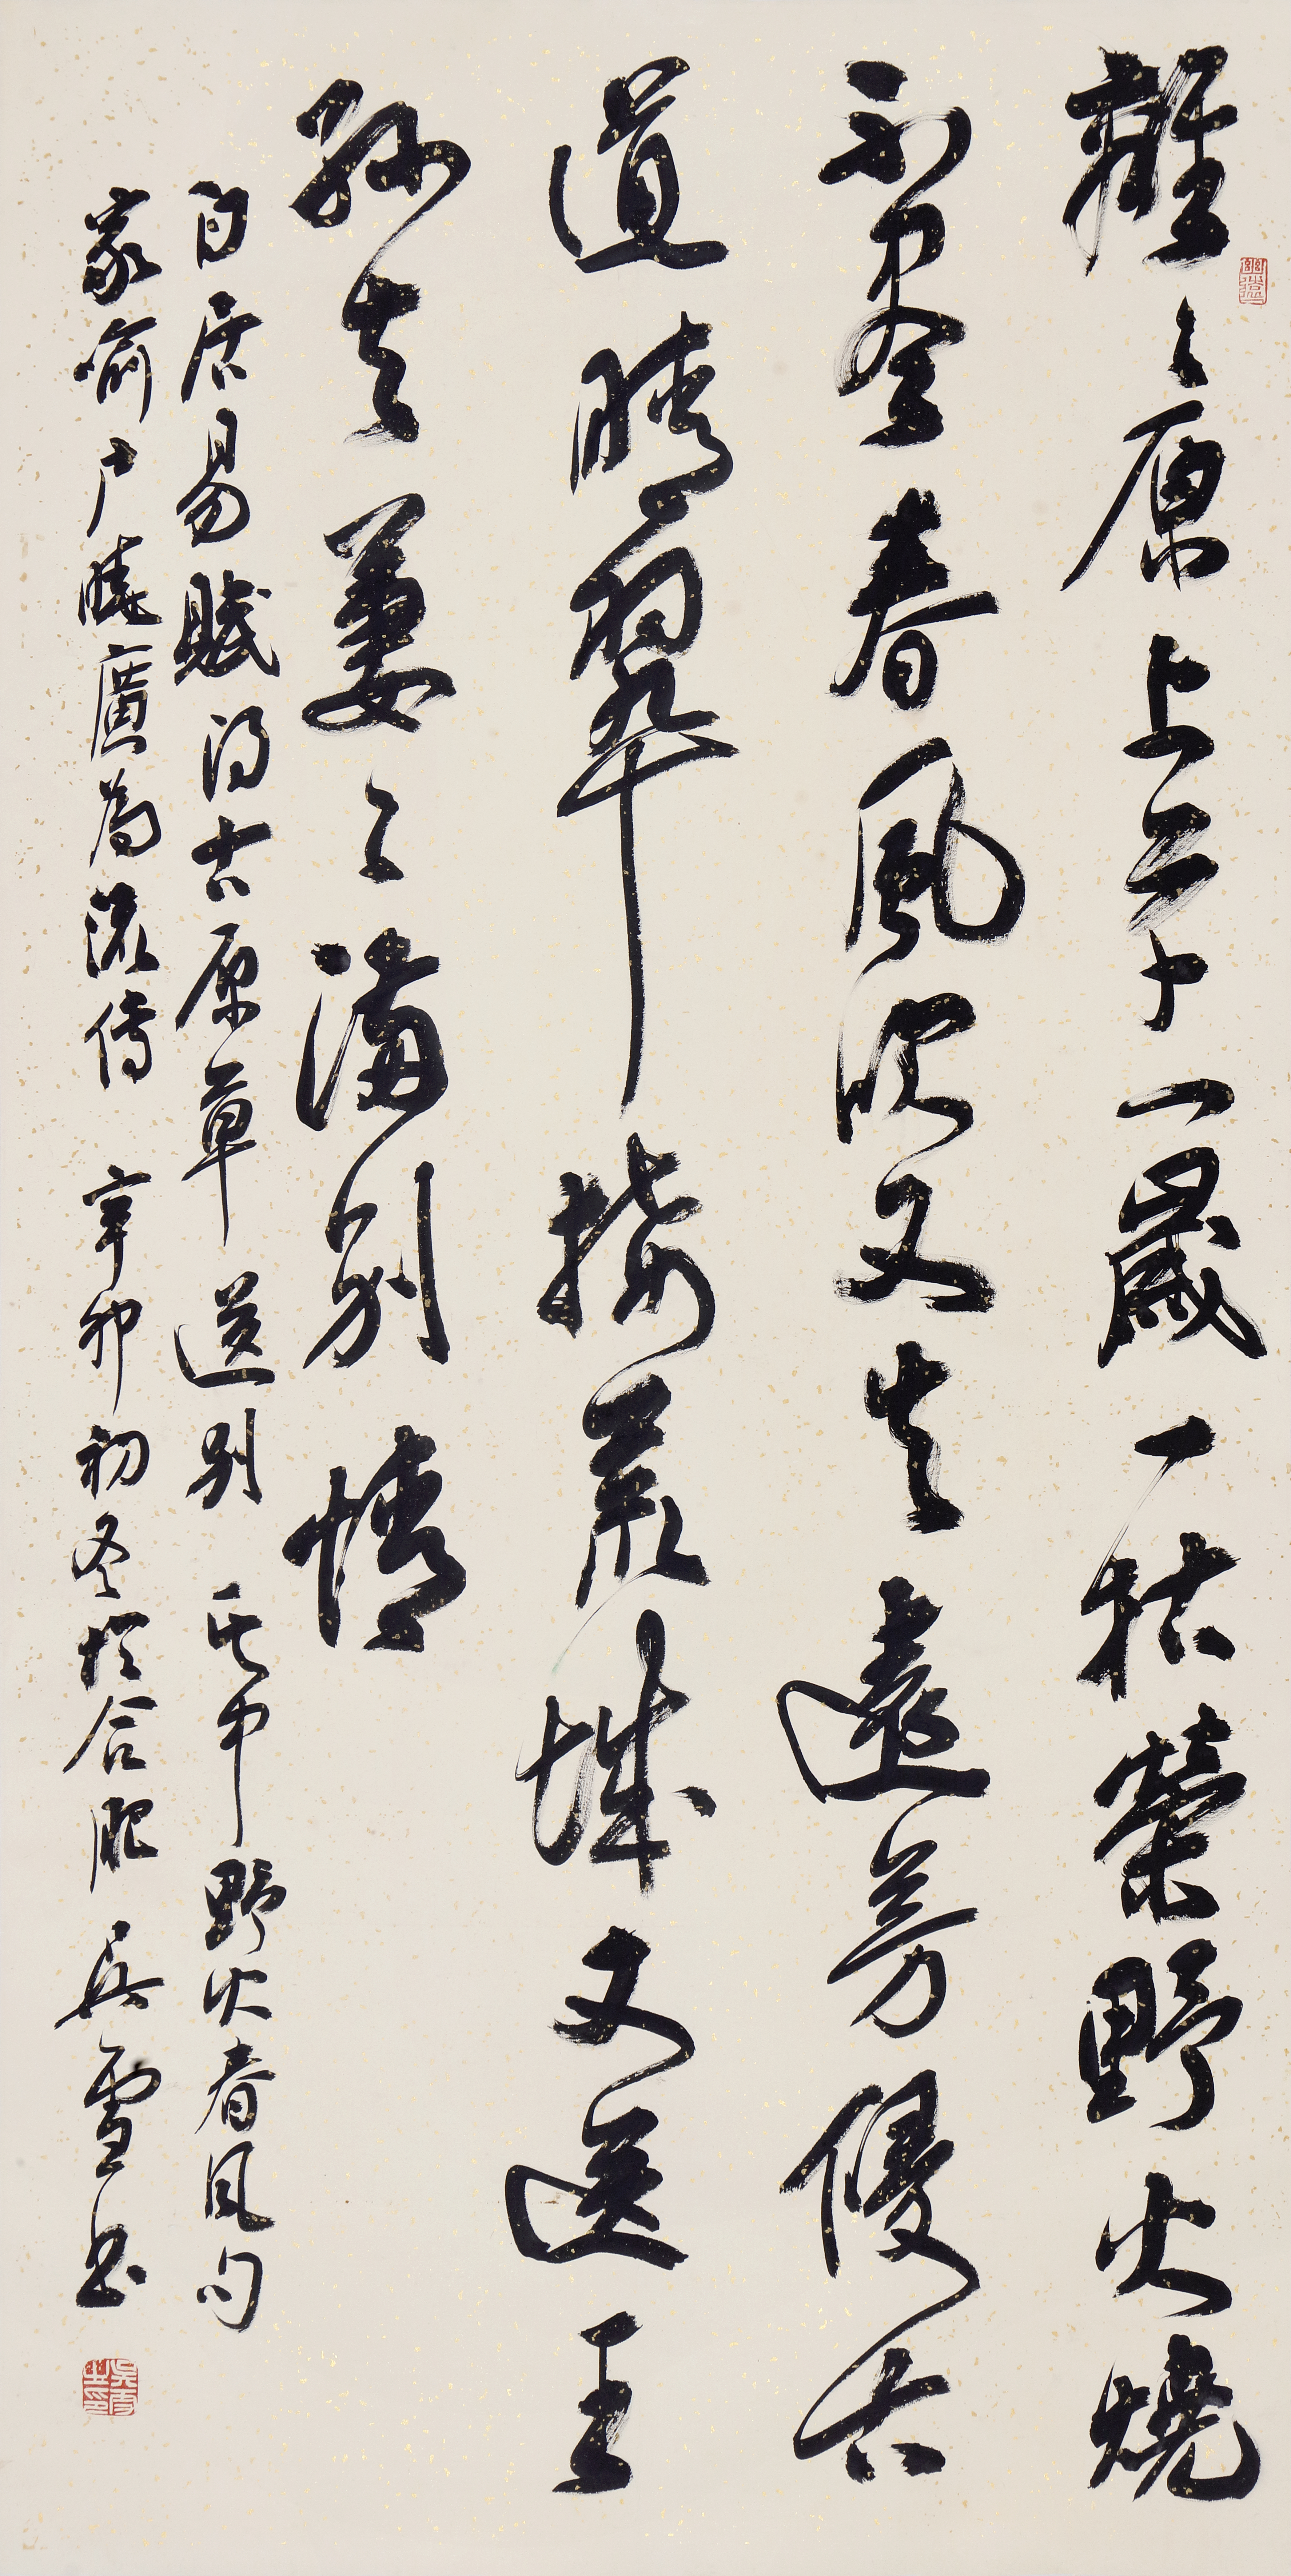 離々原上草一歲一枯榮野火燒
不盡春風吹又生遠芳侵古
道晴翠接荒城又送王
孫去萋々滿別情
白居易賦得古原草送別其中野火春風句
家喻戶曉廣為流傳辛卯初冬於合肥吳雪書
吳雪之印